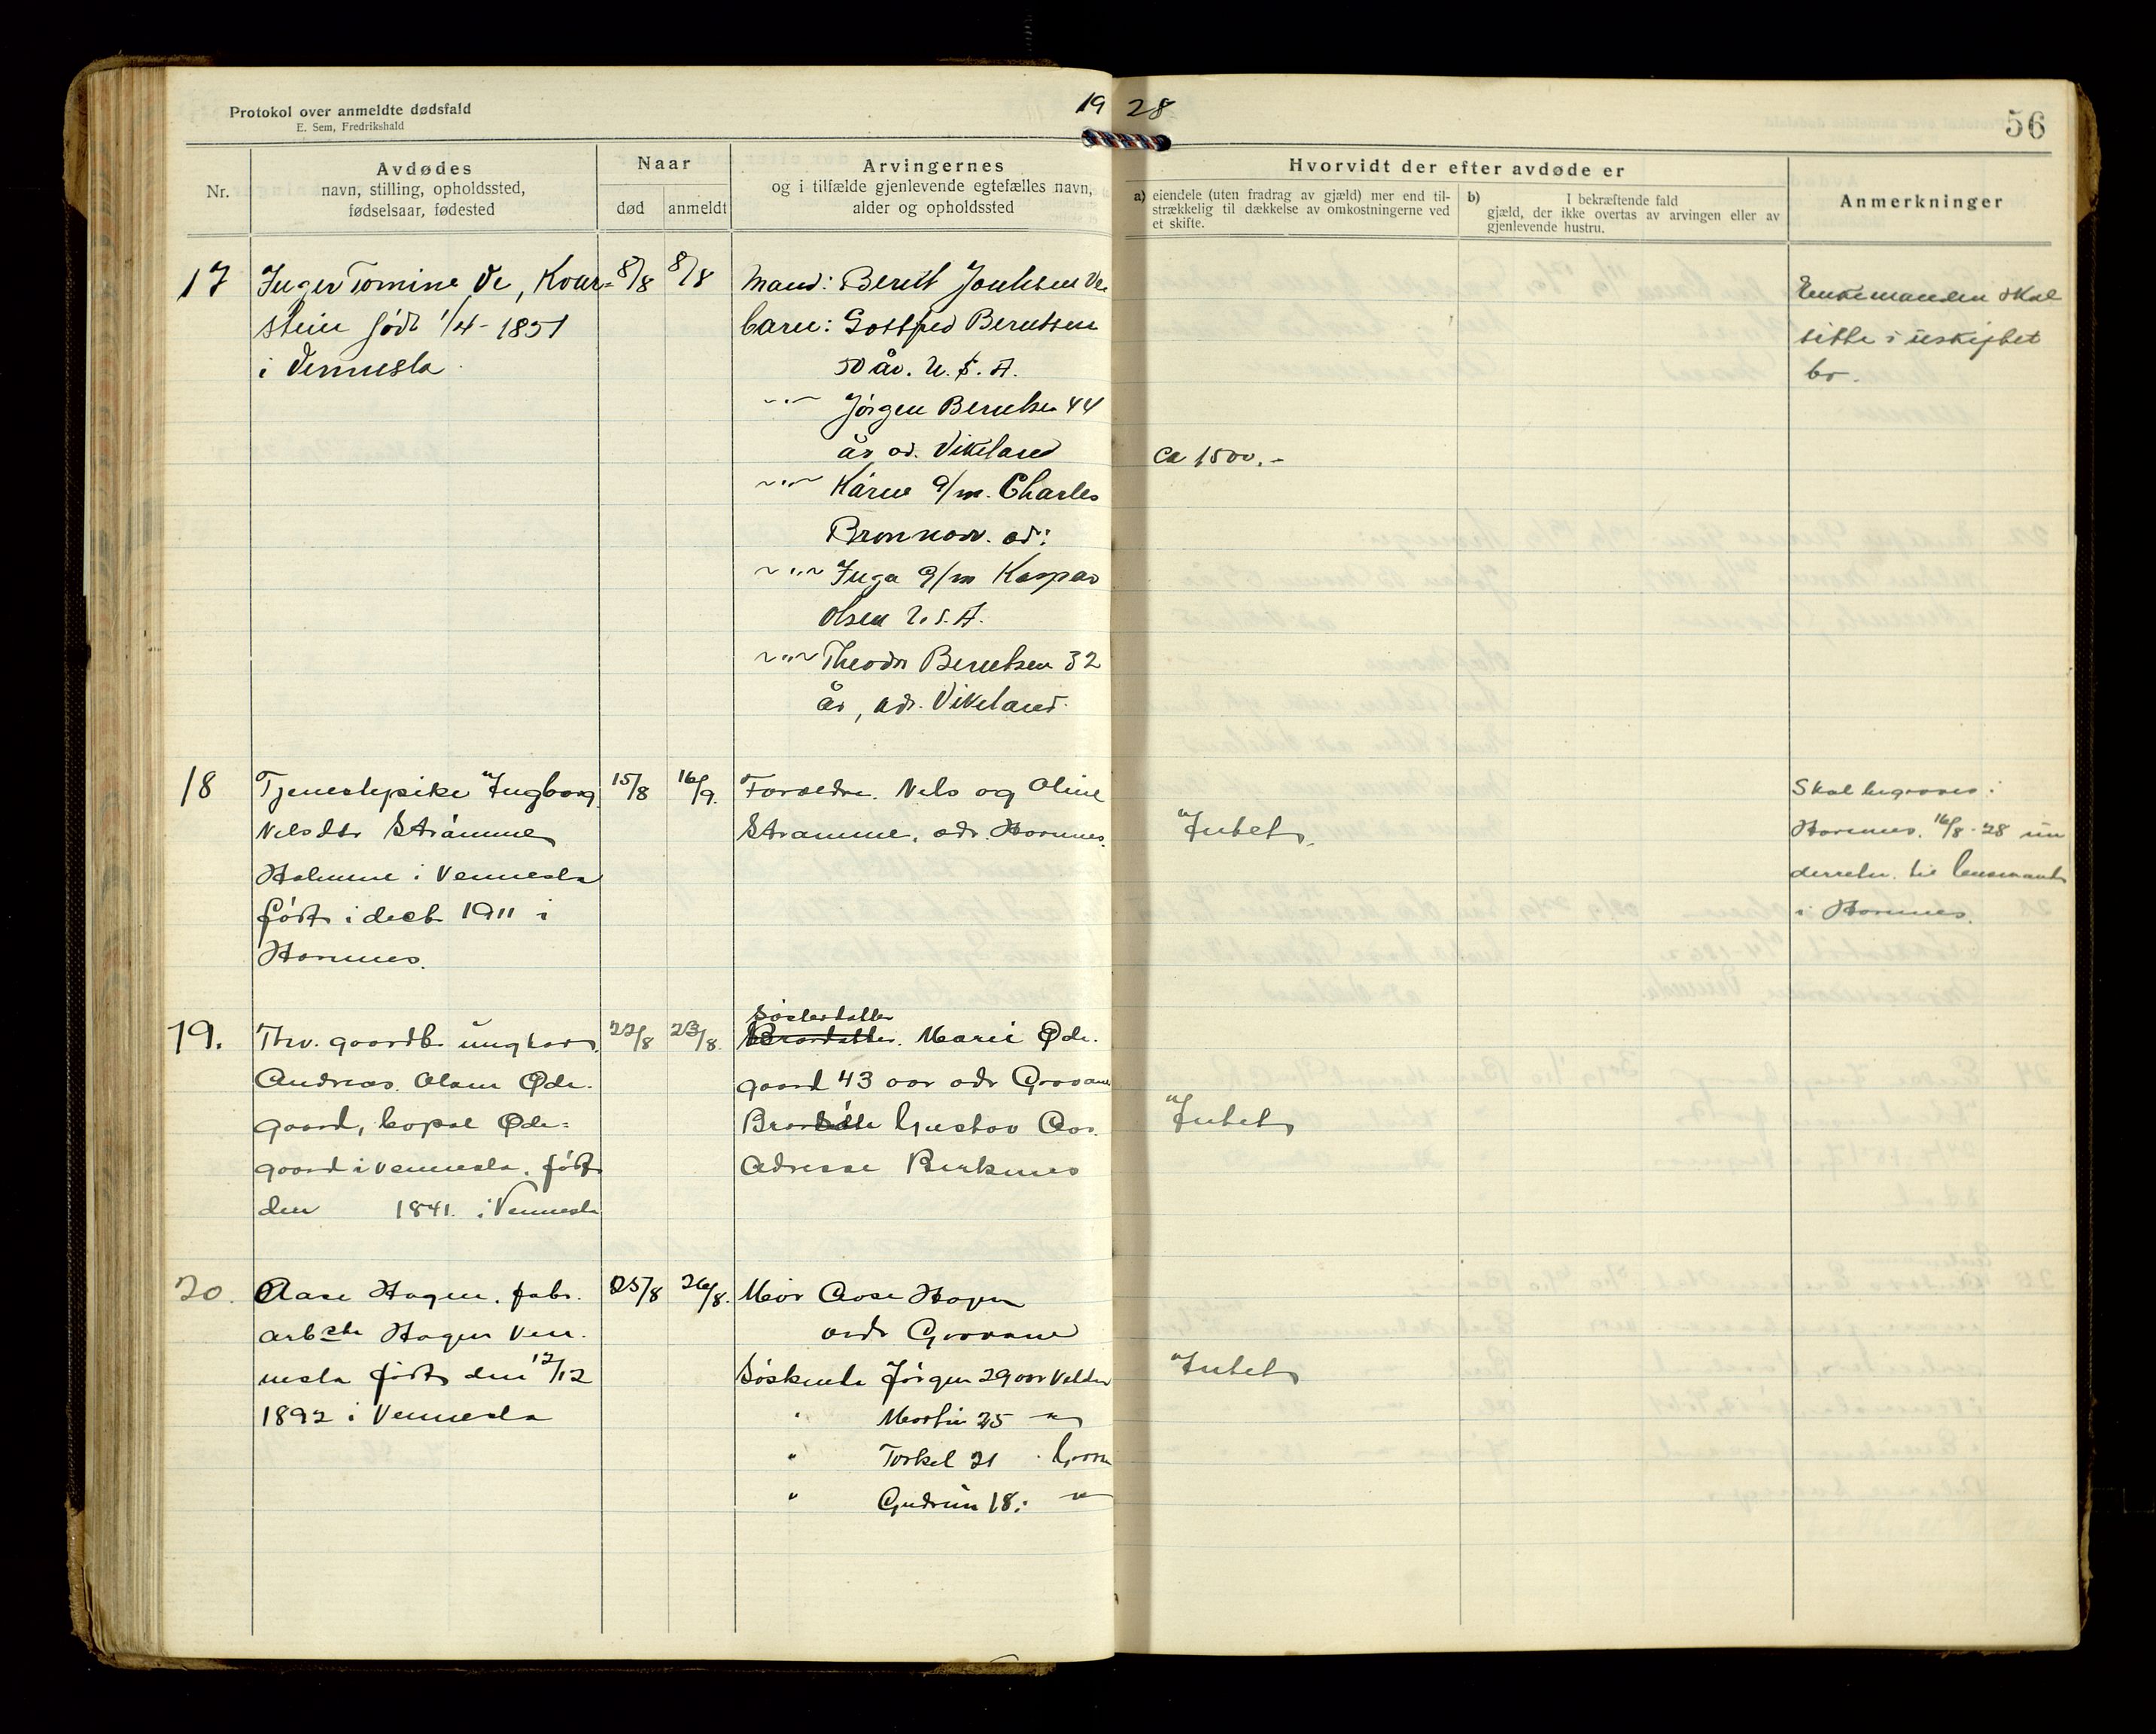 Protokol over anmeldte dødsfald
E. Sem, Fredrikshald
19 28
56
Nr.
Avdødes
navn, stilling, opholdssted,
fødselsaar, fødested
Naar
død
anmeldt
Arvingernes
og i tilfælde gjenlevende egtefælles navn,
alder og opholdssted
Hvorvidt der efter avdøde er
a) eiendele (uten fradrag av gjæld) mer end til-
strækkelig til dækkelse av omkostningerne ved
et skifte.
b) I bekræftende fald
gjæld, der ikke overtas av arvingen eller av
gjenlevende hustru.
Anmerkninger
17
Inger Tomine Ve, Kvar=
stein født 1/4 - 1851
i Vennesla
8/8
8/8
Mand: Berett Ve
barn: Gottfred Berntsen
50 år. U.S.A.
-"- Jørgen Berntsen 44
år ad. Vikeland
-"- Kårne g/m. Charles
ad:
-"- Inga g/m Kaspar
Olsen U.S.A.
-"- Theodor Berntsen 32
år, adr. Vikeland.
Ca 1500.-
Enkemanden skal
sitte i uskiftet
bo.
18
Tjenestepike Ingborg
Nelsdtr Stråmme
Holmene i Vennesla
født i decb 1911 i
Hornnes.
15/8
16/9.
Foreldre. Nels og Oline
Stramme. adr. Hornnes.
Intet
Skal begraves i
Hornnes. 16/8 - 28 un
derretn. til lensmand
i Hornnes.
19.
Thv. gaardbr ungkar
Andreas Olsen Øde-
gaard, bopæl Øde=
gaard i Vennesla. født
den 1841. i Vennesla
22/8
23/8.
Søsterdatter
Brordatter. Marie Øde-
gaard 43 aar adr Grovane
Gustav Aas
Adresse Birkenes
Intet
20.
Aase Hagen. fabr.
arbstr Hagen Ven-
nesla født den 12/12
1892 i Vennesla
25/8
26/8.
Mor Aase Hagen
adr Grovane
Søskende Jørgen 29 aar
" Martin 25 -"-
" Torkel 21
" Gudrun 18: -"-
Intet